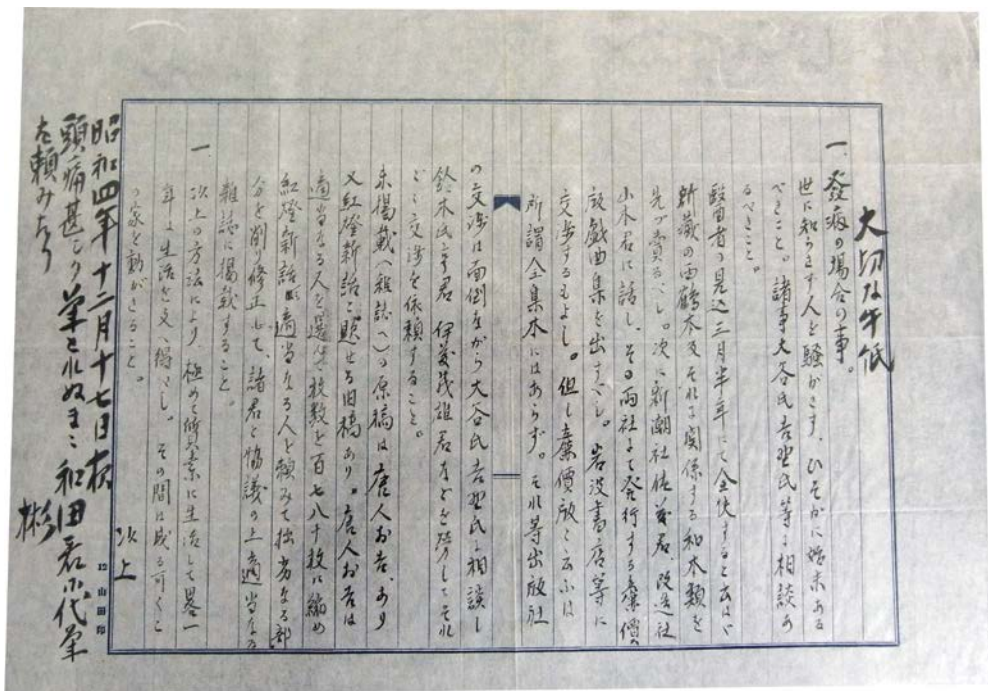 大切な手紙
一、發病の場合の事。
世に知らさず人を騒がさず、ひそかに始末ある
べきこと。諸事大谷氏吉野氏等に相談あ
るべきこと。
醫者の見込三月半年にて全快すると云はゞ
新蔵の西鶴本及それに関係する和本類を
先づ賣るべし。次に新潮社佐藤君、改造社
山本君に話し、その両社より発行する廉價
版戯曲集を出すべし。岩波書店等に
交渉するもよし。但し廉價版と云ふは
所謂全集本にはあらず。それ等出版社
の交渉は面倒ながら大谷氏吉野氏に相談し
鈴木氏亨君 伊藤茂雄君などを労してそれ
〴〵交渉を依頼すること。
未掲載(雑誌へ)の原稿は唐人お吉、あり
又紅燈新話と題せる旧稿あり。唐人お吉は
適当なる人を選び枚数を百七八十枚に縮め
紅燈新話適当なる人を頼みて拙劣なる部
分を削り修正して、諸君と協議の上適当なる
雑誌に掲載すること。
一、以上の方法により、極めて質素に生活して畧一
年は生活を支へ得べし。その間は成る可くこ
の家を動かざること。
以上
昭和四年十二月十七日夜
頭痛甚しく筆とれぬまゝ和田君に代筆
を頼みたり
彬
12 山田印